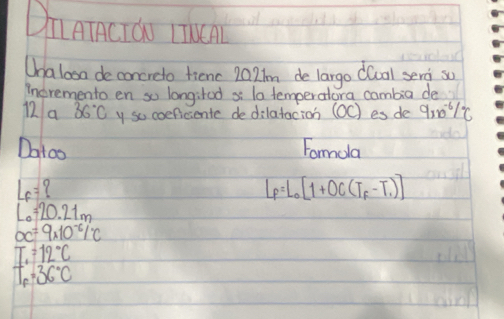 DILATACIÓN LINEAL
Una losa de concreto tiene 20.21m de largo ¿Cual será su
incremento en su longitud si la temperatura cambia de
12 a 36°C y su coeficiente de dilatación (OC) es de 9x10⁻⁶/°C
Datos
Formula
LF=?
LF=Lo[1+OC(TF-Ti)]
Lo=20.21m
OC=9x10⁻⁶/°C
Ti=12°C
TF=36°C